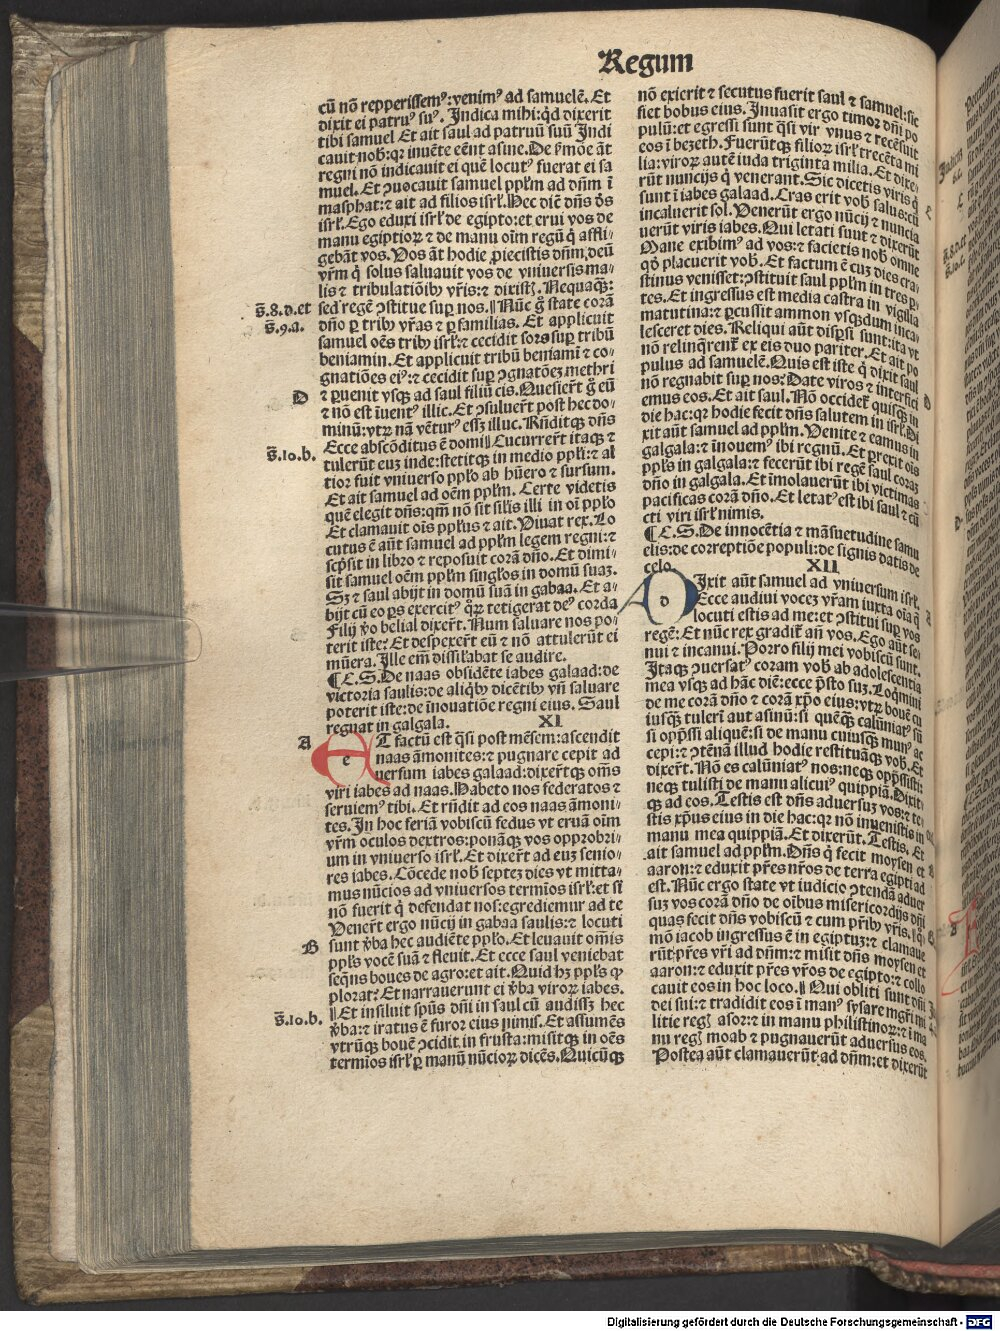 Regum
cū nō repperissemꝰ:venimꝰ ad samuelē. Et
dixit ei patruꝰ suꝰ. Indica mihi:qd dixerit
tibi samuel Et ait saul ad patruū suū Indi
cauit nob̄:qꝛ inuēte eēnt asine. De ẜmōe āt
regni nō indicauit ei quē locutꝰ fuerat ei sa
muel. Et ꝯuocauit samuel pplm ad dn̄m ī
masphat:⁊ ait ad filios isrl. Hec dic̄ dn̄s dꝰs
isrl. Ego eduxi isrl de egipto:et erui vos de
manu egiptioꝝ ⁊ de manu oīm regū q̇ affli-
gebāt vos. Vos āt hodie ꝓiecistis dn̄m deū
vr̄m q̇ solus saluauit vos de vniuersis ma-
lis ⁊ tribulatiōib vr̄is:⁊ dixistꝭ. Nequaqꝫ:
s̄.8.d.et
sed regē ꝯstitue suꝑ nos. Nūc ḡ state corā
s̄.9.a.
dn̄o ꝑ trib vr̄as ⁊ ꝑ familias. Et applicuit
samuel oēs trib isrl:⁊ cecidit sors suꝑ tribū
beniamin. Et applicuit tribū beniami ⁊ co-
gnatiōes eiꝰ:⁊ cecidit suꝑ ꝯgnatōeꝫ methri
D
⁊ ꝑuenit vsqꝫ ad saul filiū cis. Quesiert̄ ḡ eū
⁊ nō est īuentꝰ illic. Et ꝯsuluert̄ post hec do-
minū:vtꝝ nā vēturꝰ essꝫ illuc. Rn̄ditqꝫ dn̄s
Ecce abscōditus ē domi Cucurrert̄ itaqꝫ ⁊
s̄.10.b.
tulerūt euꝫ inde:stetitqꝫ in medio ppli:⁊ al
tior fuit vniuerso pplo ab hūero ⁊ sursum.
Et ait samuel ad oēm pplm. Certe videtis
quē elegit dn̄s:qm̄ nō sit silis illi in oī pplo
Et clamauit oīs pplus ⁊ ait. Viuat rex. Lo
cutus ē aūt samuel ad pplm legem regni:⁊
scꝓsit in libro ⁊ reposuit corā dn̄o. Et dimi-
sit samuel oēm pplm singlos in domū suaꝫ.
Sꝫ ⁊ saul abijt in domū suā in gabaa. Et a-
bijt cū eo ꝑs exercitꝰ qꝝ tetigerat deꝰ corda
Filij vo belial dixert̄. Num saluare nos po-
terit iste? Et despexert̄ eū ⁊ nō attulerūt ei
mūera. Ille em̄ dissilabat se audire.
¶ C.S. De naas obsidēte iabes galaad:de
victoria saulis:de aliqb dicētib vn̄ saluare
poterit iste:de īnouatiōe regni eius. Saul
regnat in galgala. XI
A
e
ET factū est qsi post mēsem:ascendit
naas āmonites:⁊ pugnare cepit ad
uersum iabes galaad:dixert̄qꝫ om̄s
viri iabes ad naas. Habeto nos federatos ⁊
seruiemꝰ tibi. Et rn̄dit ad eos naas āmoni-
tes. In hoc feriā vobiscū fedus vt eruā oīm
vr̄m oculos dextros:ponāqꝫ vos opprobri-
um in vniuerso isrl. Et dixert̄ ad euꝫ senio-
res iabes. Cōcede nob̄ septeꝫ dies vt mitta-
mus nūcios ad vniuersos termīos isrl:et si
nō fuerit q̇ defendat nos:egrediemur ad te
Venert̄ ergo nūcij in gabaa saulis:⁊ locuti
B
sunt vba hec audiēte pplo. Et leuauit om̄is
ppls vocē suā ⁊ fleuit. Et ecce saul veniebat
seqn̄s boues de agro:et ait. Quid hꝫ ppls qꝙ
plorat? Et narrauerunt ei vba viroꝝ iabes.
Et insiluit spūs dn̄i in saul cū audissꝫ hec
s̄.10.b.
vba:⁊ iratus ē furor eius nimis. Et assumēs
vtrūqꝫ bouē ꝯcidit in frusta:misitqꝫ in oēs
termios isrl ꝑ manū nūcioꝝ dicēs. Quicūqꝫ
nō exierit ⁊ secutus fuerit saul ⁊ samuel:sic
fiet bobus eius. Inuasit ergo timor dn̄i po
pulū:et egressi sunt qsi vir vnus ⁊ recēsuit
eos ī bezeth. Fuerūtqꝫ filioꝝ isrl trecēta mi
lia:viroꝝ autē iuda triginta milia. Et dixe-
rūt nuncijs q̇ venerant. Sic dicetis viris q̇
sunt ī iabes galaad. Cras erit vob̄ salus:cū
incaluerit sol. Venerūt ergo nūcij ⁊ nuncia
C
uerūt viris iabes. Qui letati sunt ⁊ dixerūt
Mane exibimꝰ ad vos:⁊ facietis nob̄ omne
qd placuerit vob̄. Et factum ē cuꝫ dies cra-
stinus venisset:ꝯstituit saul pplm in tres ꝑ-
tes. Et ingressus est media castra in vigilia
matutina:⁊ ꝑcussit ammon vsqꝫdum inca-
lesceret dies. Reliqui aūt disꝑsi sunt:ita vt
nō relinqrent̄ ex eis duo pariter. Et ait po
pulus ad samuelē. Quis est iste q̇ dixit saul
nō regnabit suꝑ nos? Date viros ⁊ interfici
emus eos. Et ait saul. Nō occidet̄ quisqꝫ in
D
die hac:qꝛ hodie fecit dn̄s salutem in isrl. Di
xit aūt samuel ad pplm. Venite ⁊ eamus in
galgala:⁊ īnouemꝰ ibi regnū. Et ꝑrexit oīs
ppls in galgala:⁊ fecerūt ibi regē saul coraꝫ
dn̄o in galgala. Et īmolauerūt ibi victimas
pacificas corā dn̄o. Et letatꝰ est ibi saul ⁊ cū
cti viri isrl nimis.
¶ C.S. De innocētia ⁊ māsuetudine samu
elis:de correptiōe populi:de signis datis de
celo. XII
d
DIxit aūt samuel ad vniuersum isrl.
Ecce audiui voceꝫ vr̄am iuxta oīa q̄
A
locuti estis ad me:et ꝯstitui suꝑ vos
regē:Et nūc rex gradit̄ an̄ vos. Ego aūt se-
nui ⁊ incanui. Porro filij mei vobiscū sunt.
Itaqꝫ ꝯuersatꝰ coram vob̄ ab adolescentia
mea vsqꝫ ad hāc diē:ecce p̄sto suꝫ. Loqmini
de me corā dn̄o ⁊ corā xp̄o eius:vtꝝ bouē cu
iusqꝫ tulerī aut asinū:si quēqꝫ calūniatꝰ sū
si opp̄ssi aliquē:si de manu cuiusqꝫ munꝰ ac
cepi:⁊ ꝯtēnā illud hodie restituāqꝫ vob̄. Et
dixert̄. Nō es calūniatꝰ nos:neqꝫ opp̄ssisti:
neqꝫ tulisti de manu alicuiꝰ quippiā. Dixit-
qꝫ ad eos. Testis est dn̄s aduersuꝫ vos:⁊ te-
stis xp̄us eius in die hac:qꝛ nō inuenistis in
manu mea quippiā. Et dixerūt. Testis. Et
ait samuel ad pplm. Dn̄s q̇ fecit moysen et
aaron:⁊ eduxit pr̄es nr̄os de terra egipti ad
est. Nūc ergo state vt iudicio ꝯtendā aduer
suꝫ vos corā dn̄o de oībus misericordijs dn̄i
quas fecit dn̄s vobiscū ⁊ cum pr̄ib vr̄is. qū
mō iacob ingressus ē in egiptuꝫ:⁊ clamaue
rūt pr̄es vr̄i ad dn̄m:⁊ misit dn̄s moysen et
aaron:⁊ eduxit pr̄es vr̄os de egipto:⁊ collo
cauit eos in hoc loco. Qui obliti sunt dn̄i
dei sui:⁊ tradidit eos ī manꝰ sysare mgr̄i mi
litie regꝭ asor:⁊ in manu philistinoꝝ:⁊ ī ma
nu regꝭ moab ⁊ pugnauerūt aduersus eos.
Postea aūt clamauerūt ad dn̄m:et dixerūt
Digitalisierung gefördert durch die Deutsche Forschungsgemeinschaft - DFG